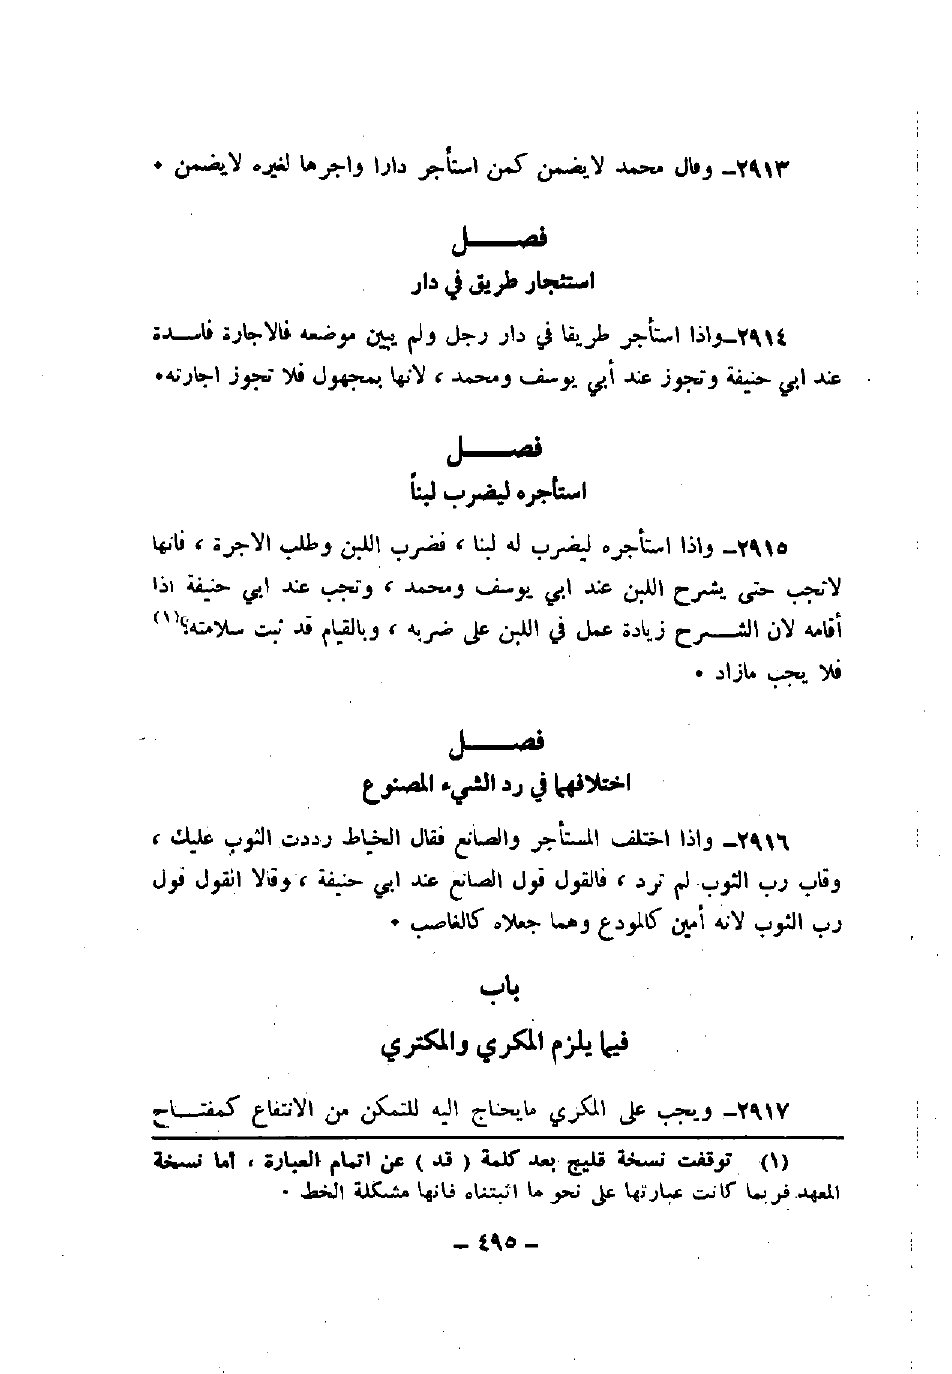 ٢٩١٣ـ وقال محمد لايضمن كمن استأجر دارا واجرها لغيره لايضمن .
فصـــــل
استئجار طريق في دار
٢٩١٤ـ واذا استأجر طريقا في دار رجل ولم يبين موضعه فالاجارة فاســدة
عند ابي حنيفة وتجوز عند أبي يوسف ومحمد ، لانها بمجهول فلا تجوز اجارته.
فصـــــل
استأجره ليضرب لبناً
٢٩١٥ـ واذا استأجره ليضرب له لبنا ، فضرب اللبن وطلب الاجرة ، فانها
لاتجب حتى يشرح اللبن عند ابي يوسف ومحمد ، وتجب عند ابي حنيفة اذا
أقامه لان الشــرح زيادة عمل في اللبن على ضربه ، وبالقيام قد ثبت سلامته؟(١)
فلا يجب مازاد .
فصـــــل
اختلافهما في رد الشيء المصنوع
٢٩١٦ـ واذا اختلف المستأجر والصانع فقال الخياط رددت الثوب عليك ،
وقاب رب الثوب لم ترد ، فالقول قول الصانع عند ابي حنيفة ، وقالا القول قول
رب الثوب لانه أمين كالمودع وهما جعلاه كالغاصب .
باب
فيما يلزم المكري والمكتري
٢٩١٧ـ ويجب على المكري مايحتاج اليه للتمكن من الانتفاع كمفتــاح
(١) توقفت نسخة قليج بعد كلمة ( قد ) عن اتمام العبارة ، أما نسخة
المعهد فربما كانت عبارتها على نحو ما اثبتناه فانها مشكلة الخط .
ـ ٤٩٥ ـ